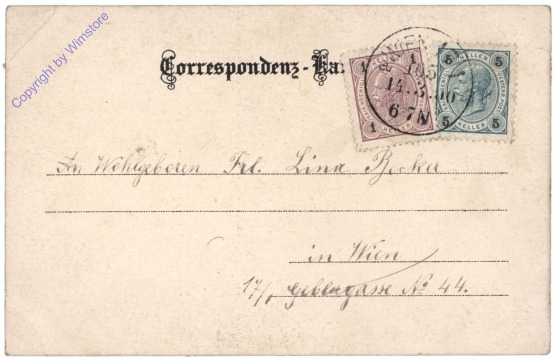 Copyright by Wimstore
Correspondenz-Kar
1 HELLER 1
5 HELLER 5
6-7N
An Wohlgeboren Frl. Lina Becker
in Wien
17/1 Geblergasse No 44.